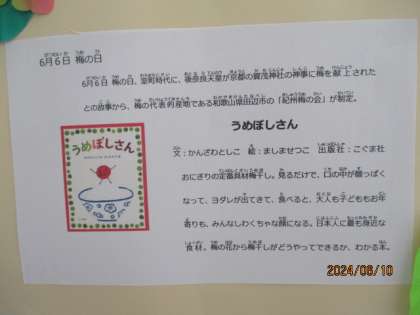 6月6日 梅の日
6月6日 梅の日、室町時代に、後奈良天皇が京都の賀茂神社の神事に梅を献上された
との故事から、梅の代表的産地である和歌山県田辺市の「紀州梅の会」が制定。
うめぼしさん
うめぼしさん
文:かんざわとしこ 絵:ましませつこ 出版社:こぐま社
おにぎりの定番具材梅干し。見るだけで、口の中が酸っぱく
なって、ヨダレが出てきて、食べると、大人も子どももお年
寄りも、みんなしわくちゃな顔になる。日本人に最も身近な
食材。梅の花から梅干しがどうやってできるか、わかる本。
2024/06/10